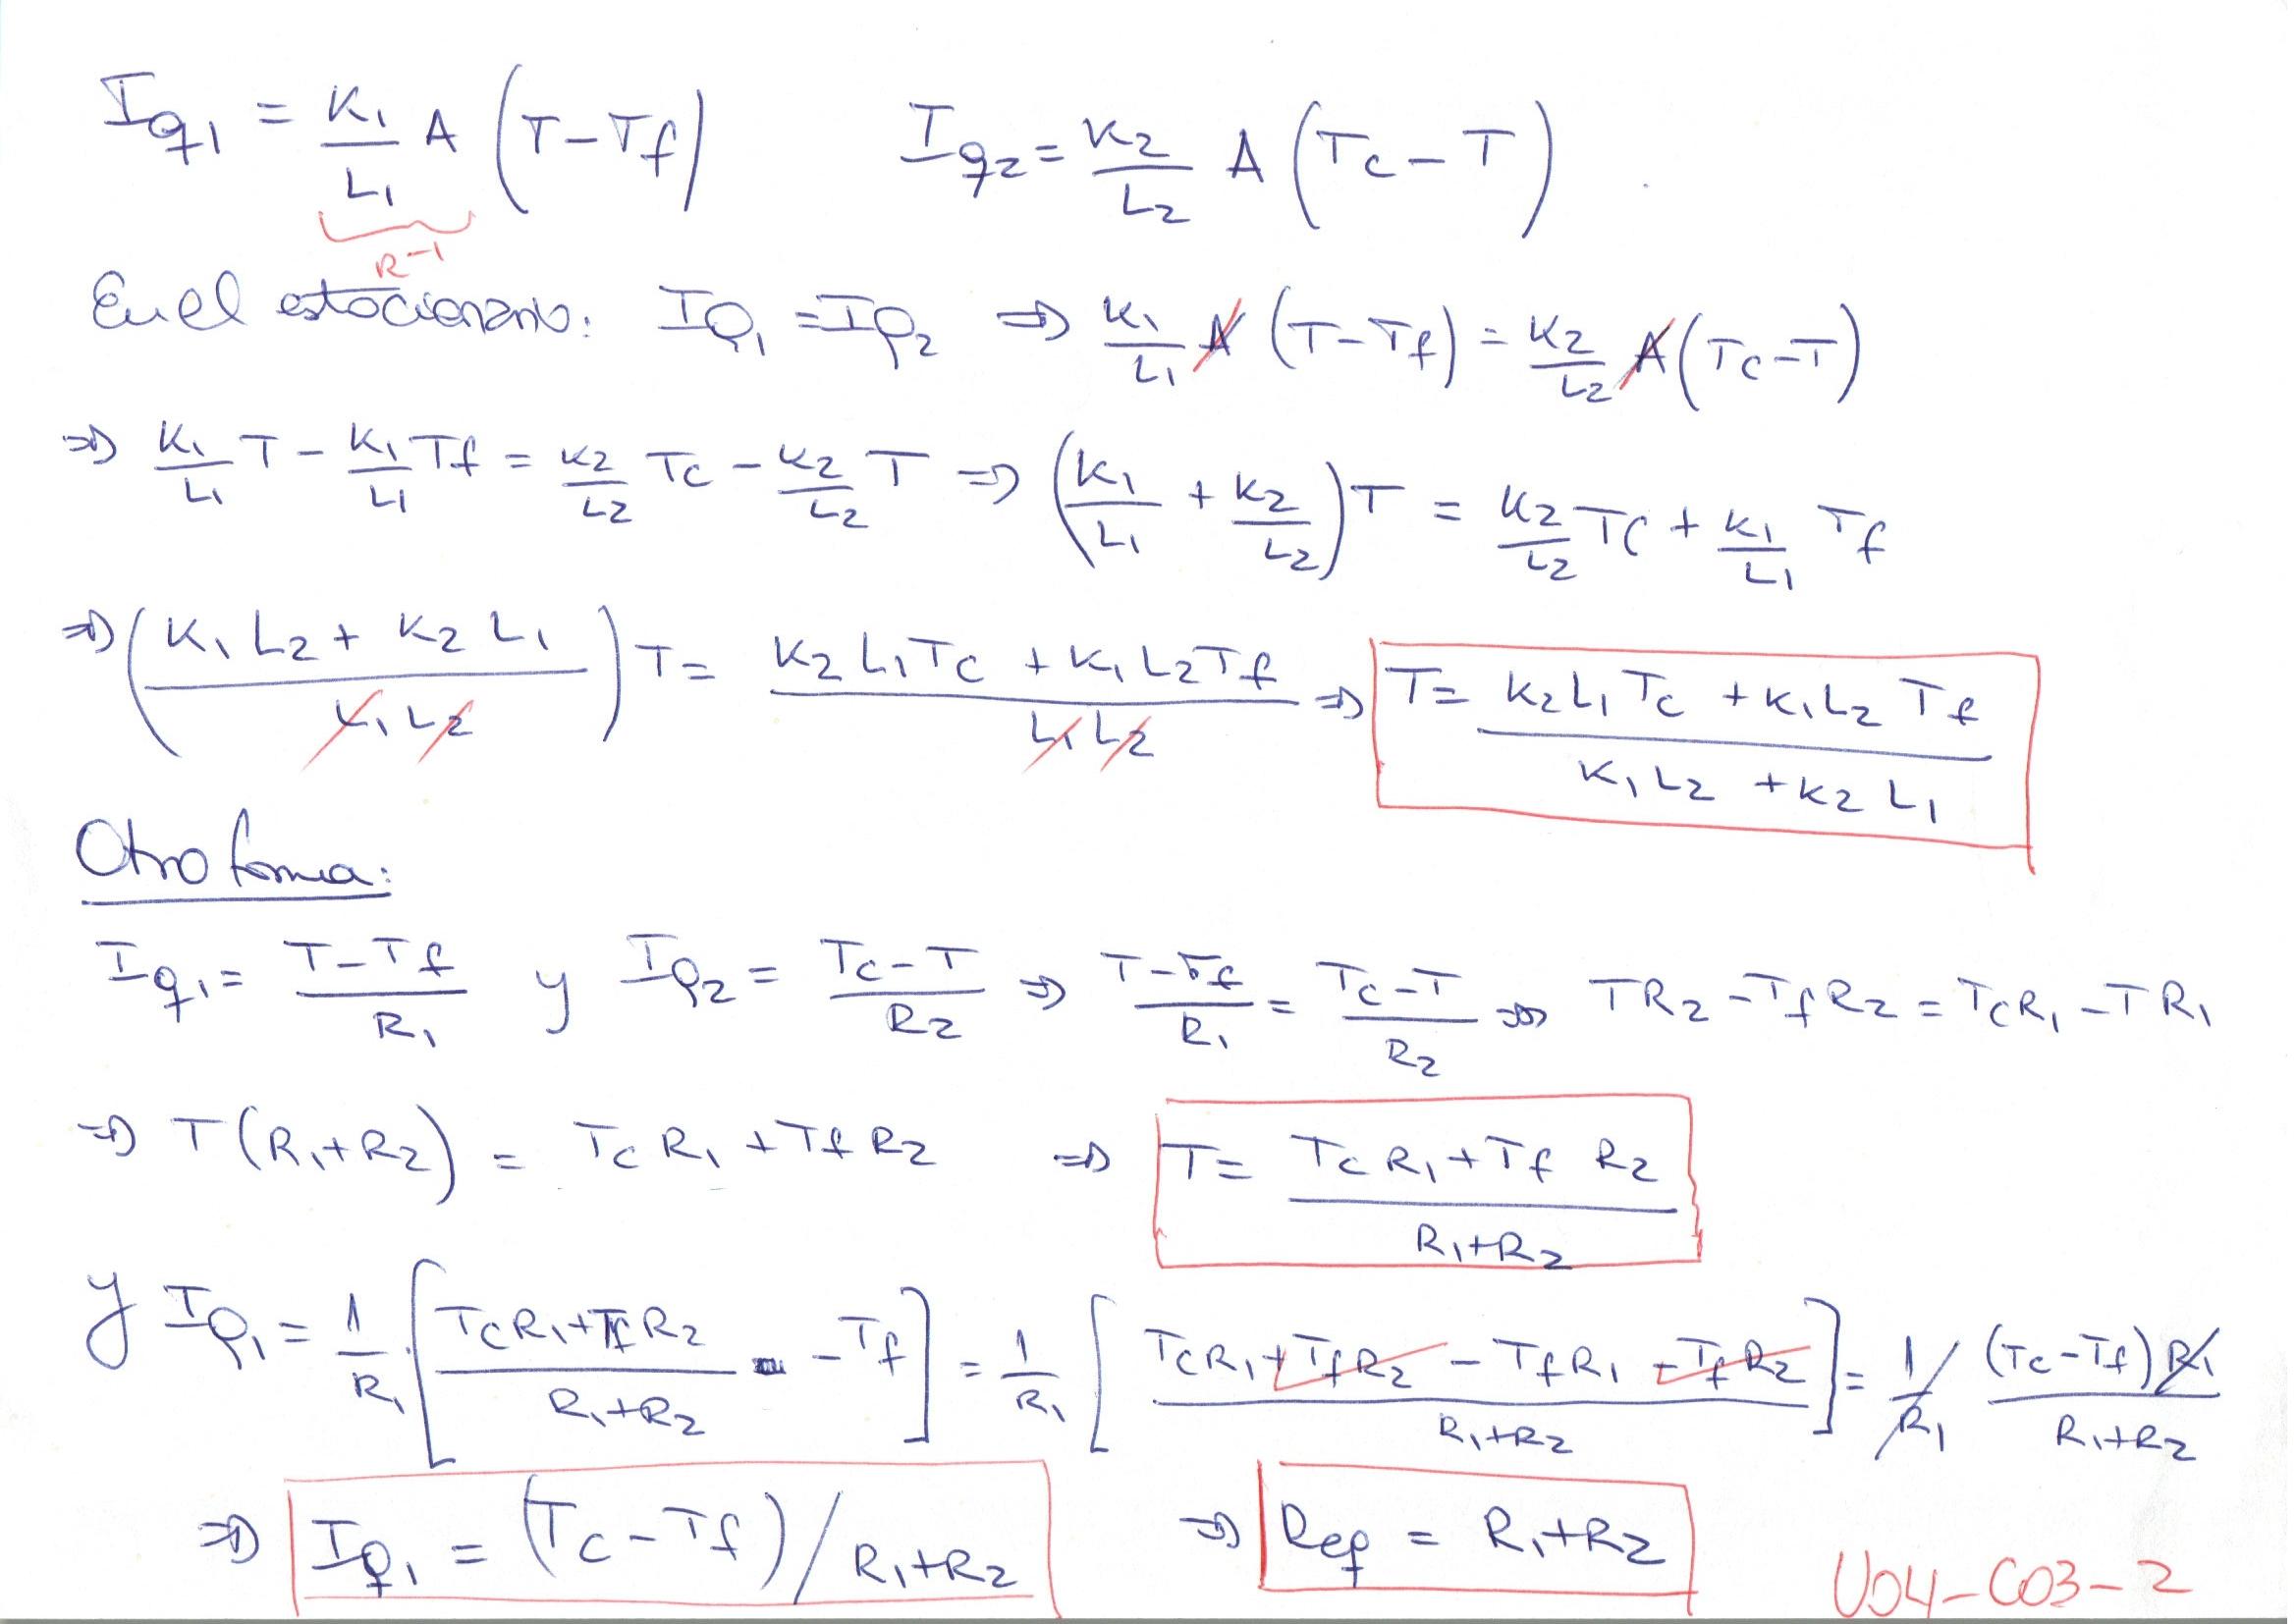 Iq1 = K1/L1 A (T-Tf)    Iq2 = K2/L2 A (Tc-T)
R^-1
En el estacionario: IQ1 = IQ2 => K1/L1 A (T-Tf) = K2/L2 A (Tc-T)
=> K1/L1 T - K1/L1 Tf = K2/L2 Tc - K2/L2 T => (K1/L1 + K2/L2) T = K2/L2 Tc + K1/L1 Tf
=> (K1 L2 + K2 L1 / L1 L2) T = K2 L1 Tc + K1 L2 Tf / L1 L2 => T = K2 L1 Tc + K1 L2 Tf / K1 L2 + K2 L1
Otra forma:
Iq1 = T-Tf / R1 y IQ2 = Tc-T / R2 => T-Tf / R1 = Tc-T / R2 => TR2 - Tf R2 = Tc R1 - T R1
=> T (R1+R2) = Tc R1 + Tf R2 => T = Tc R1 + Tf R2 / R1+R2
y IQ1 = 1/R1 [Tc R1 + Tf R2 / R1+R2 - Tf] = 1/R1 [Tc R1 + Tf R2 - Tf R1 - Tf R2 / R1+R2] = 1/R1 (Tc-Tf) R1 / R1+R2
=> IQ1 = (Tc-Tf) / R1+R2 => Ref = R1+R2
U04-C03-2